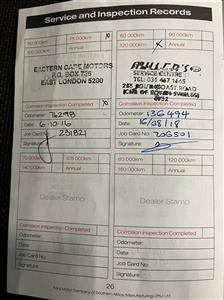 Service and Inspection Records
50 000km
75 000km
X
120 000km
Annual
EASTERN CAPE MOTORS
P.O. BOX 735
EAST LONDON 5200
Corrosion Inspection Completed
Odometer: 76298
Date: 6.10.16
Job Card No: 231821
Signature:
60 000km
90 000km
120 000km
X
Annual
SERVICE CENTRE
TEL: 031 467 1465
Corrosion Inspection Completed
X
Odometer: 136494
Date: 16/08/18
Job Card No: 206501
Signature:
70 000km
105 000km
140 000km
Annual
Dealer Stamp
Corrosion Inspection Completed
Odometer:
Date:
Job Card No:
Signature:
80 000km
120 000km
160 000km
Annual
Dealer Stamp
Corrosion Inspection Completed
Odometer:
Date:
Job Card No:
Signature:
26
Ford Motor Company of Southern Africa Manufacturing (Pty) Ltd